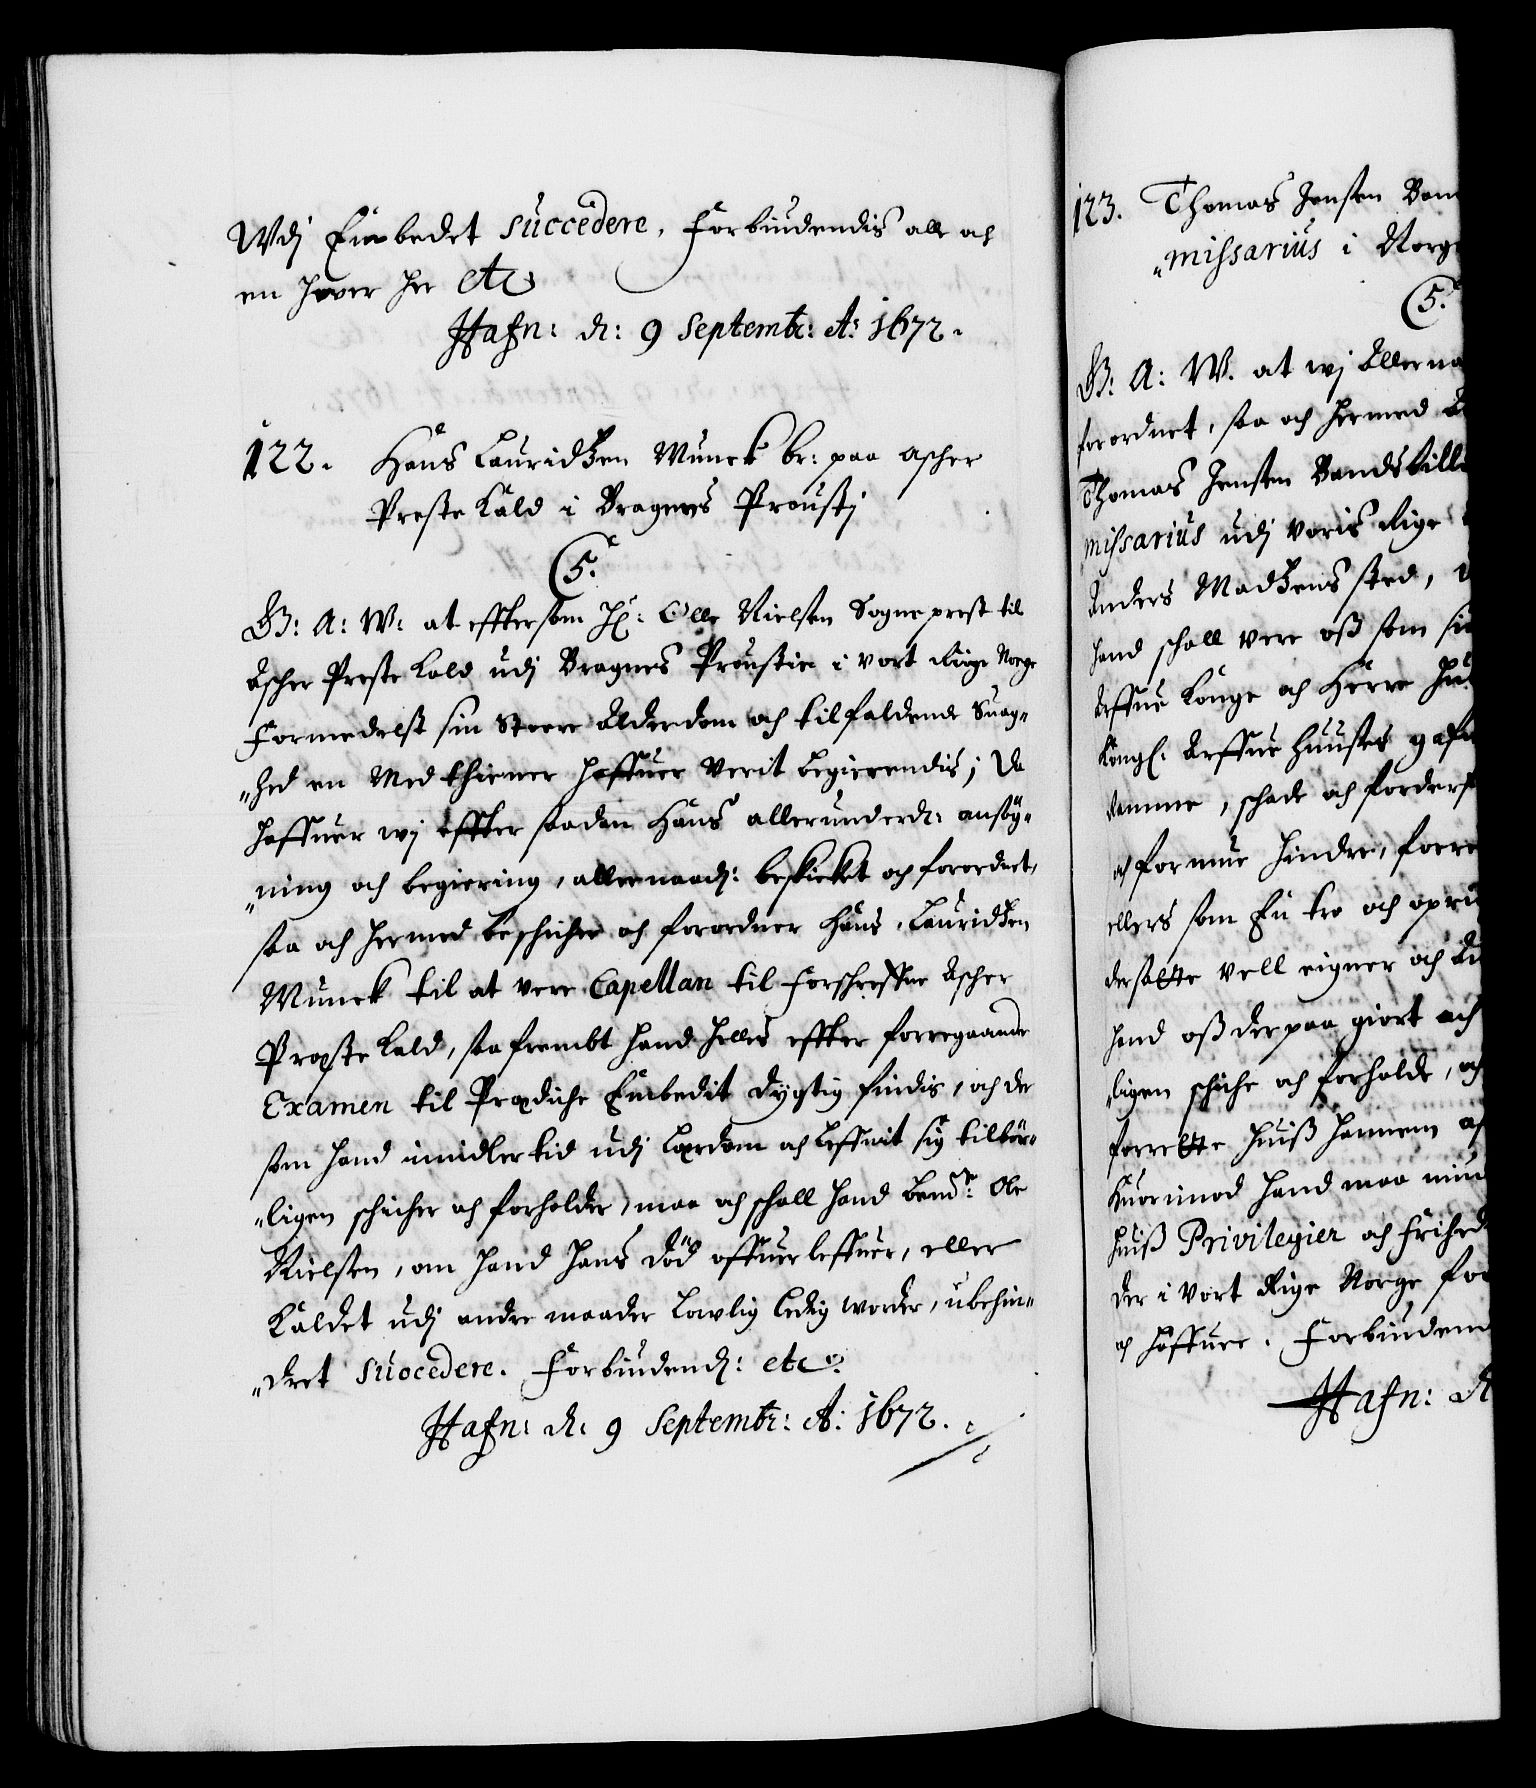 Wdj Embedet succedere, Forbiudendis alle och
en hver her etc
Hafn: d: 9 Septembr: Aº 1672.
122. Hans Lauridtzen Munck br: paa Ascher
Preste Kald i Bragnes Proustj
5.
G: A: W: at effter som Hr: Olle Nielsen Sogneprest til
Ascher Preste Kald udj Bragnes Proustie i vort Rige Norge
Formedelst sin Store Alderdom och tilfaldende Suag-
„hed en Medthiener haffuer verit begierendis; Da
haffuer wj effter saadan Hans allerunderd: ansøg-
„ning och begiering, allernaadj: beskicket och forordnet,
saa och hermed beschicher och forordner Hans Lauridtzen
Munck til at vere Capellan til Forschreffne Ascher
Præste Kald, saa frembt hand hellers effter foregaaende
Examen til Prædiche Embedit dygtig findis, och der
som hand imidlertid udj Lærdom och Leffnit sig tilbør-
„ligen schicher och forholder, maa och schall hand bemte: Ole
Nielsen, om hand Hans Død offuerleffuer, eller
Kaldet udj andre maader Lowlig ledig worder, ubehin-
„dret succedere. Forbiudendj: etc:
Hafn: d: 9 Septembr: A: 1672.
123. Thomas Jensen
„missarius i Norge
5.
G: A: W. at wj Allerna
forordnet, saa och hermed
Thomas Jensen
missarius udj voris Rige
Anders Madtzens sted,
hand schall vere oss som sin
Arffue Konge och Herre
Kongl: Arffue Huuses gafn
ramme, schade och forderf
och formue hindre,
ellers som En tro och opri
dersatte vell eigner och
hand oss derpaa giort och
„ligen schiche och forholde, och
forrette huiss hannem
Huorimod hand maa
huiss Privilegier och Frihed
der i Vort Rige Norge for
och haffuer. Forbiudend
Hafn: d